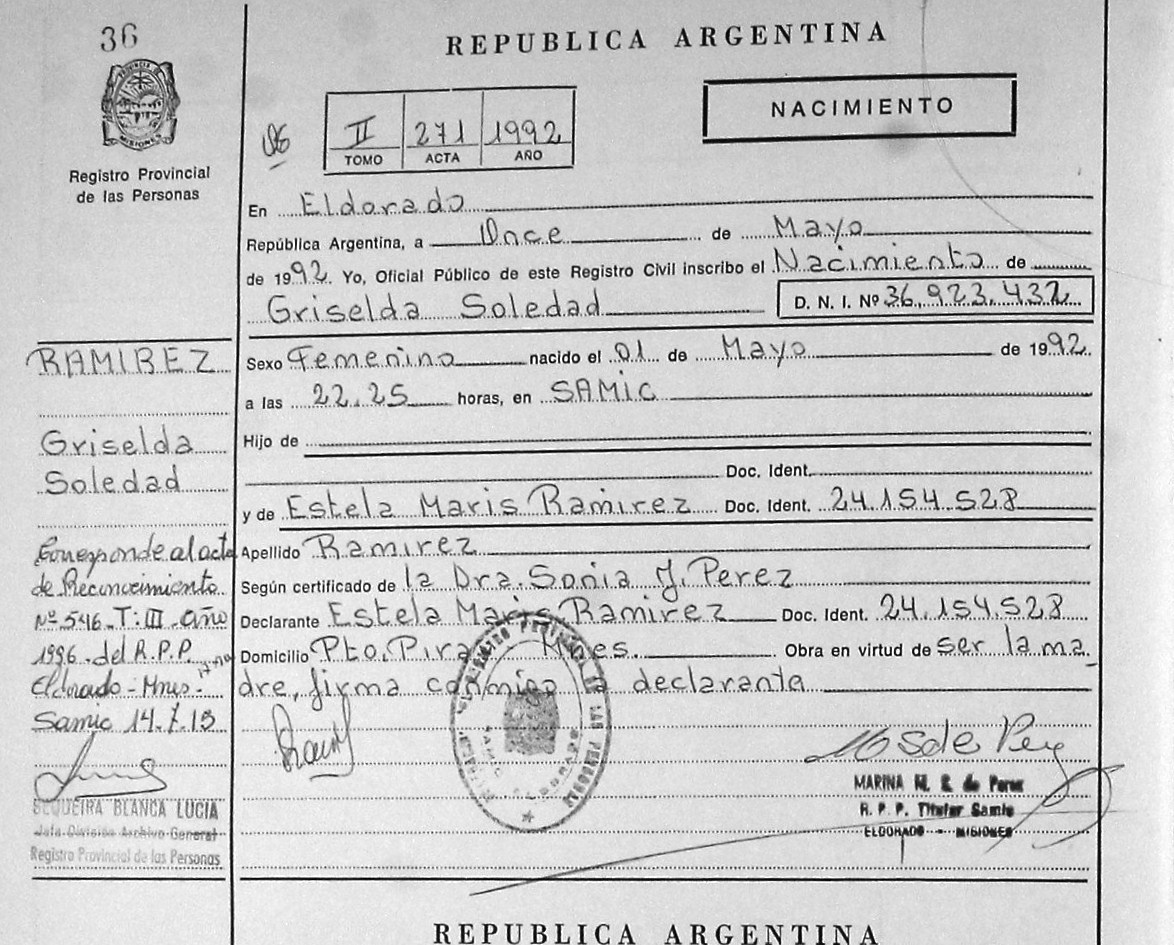 36
REPUBLICA ARGENTINA
NACIMIENTO
PROVINCIA DE
MISIONES
II 271 1992
TOMO ACTA AÑO
Registro Provincial
de las Personas
En Eldorado
República Argentina, a Once de Mayo
de 1992. Yo, Oficial Público de este Registro Civil inscribo el Nacimiento de
Griselda Soledad D. N. I. Nº 36.923.432
RAMIREZ
Griselda
Soledad
Sexo Femenino nacido el 01 de Mayo de 1992.
a las 22.25 horas, en SAMIC
Hijo de
Doc. Ident.
y de Estela Maris Ramirez Doc. Ident. 24.154.528
Apellido Ramirez
Según certificado de la Dra. Sonia J. Perez
Declarante Estela Maris Ramirez Doc. Ident. 24.154.528
Domicilio Pto. Piray Mnes. Obra en virtud de ser la ma_
dre, firma conmigo la declarante
Corresponde al acta
de Reconocimiento
Nº 546. T: III. Año
1996. del R.P.P.
Eldorado - Mnes.
Samic 14.7.15
SEQUEIRA BLANCA LUCIA
Jefa División Archivo General
Registro Provincial de las Personas
SAMIC ELDORADO
MARINA M. S. de Perez
R. P. P. Titular Samic
ELDORADO - MISIONES
REPUBLICA ARGENTINA